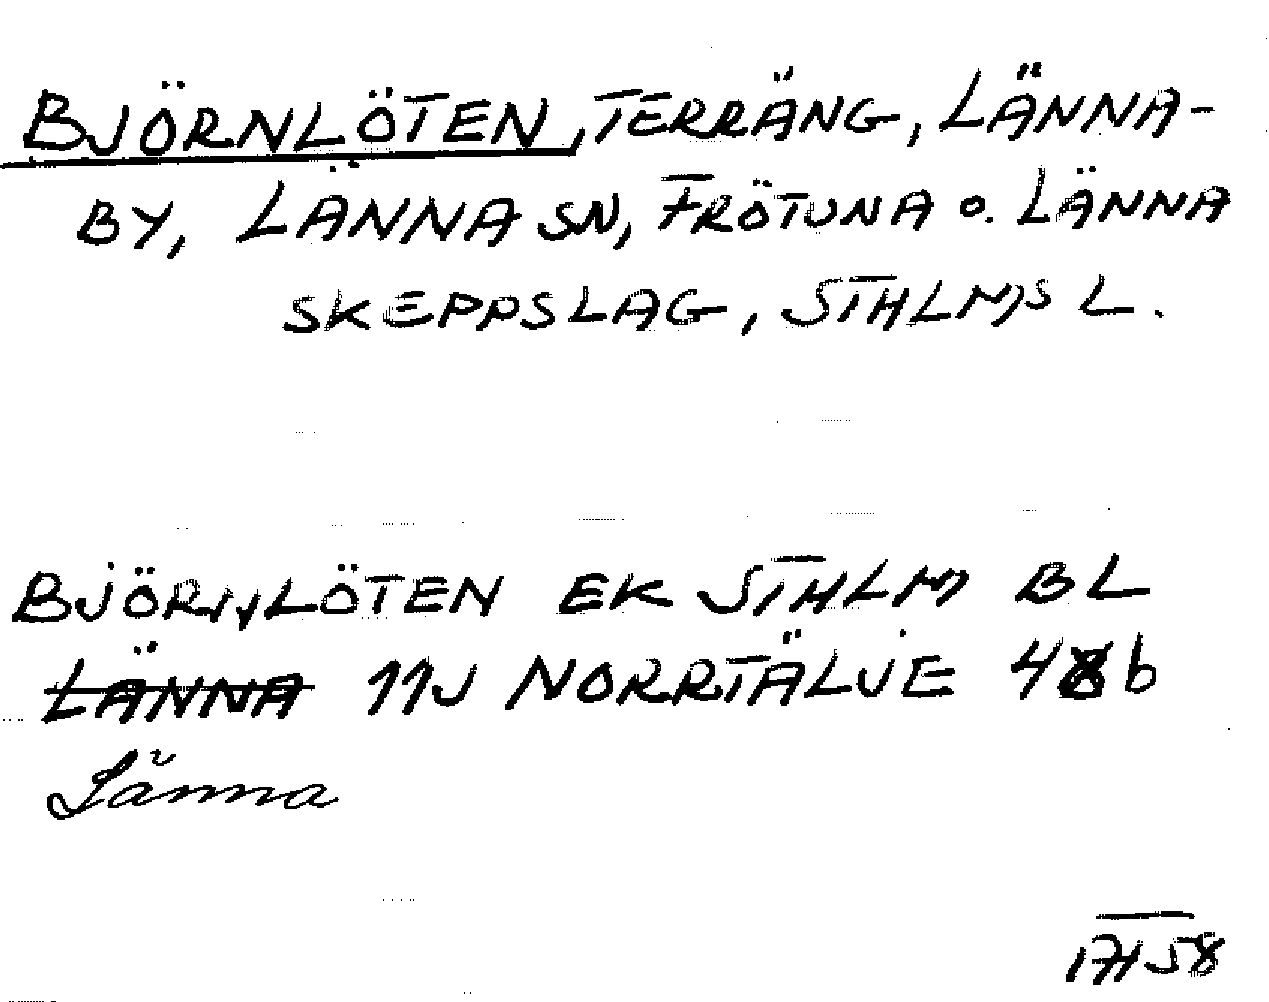 BJÖRNLÖTEN, TERRÄNG, LÄNNA-
BY, LÄNNA SN, FRÖTUNA O. LÄNNA
SKEPPSLAG, STHLMS L.
BJÖRNLÖTEN EK STHLM BL
LÄNNA 11J NORRTÄLJE 48b
Länna